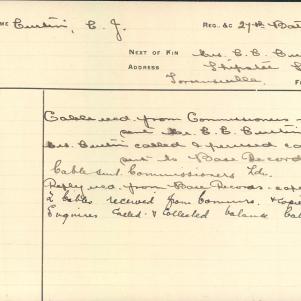 ME Curtin, C. J. REG. &c 27th Bat
NEXT OF KIN Mrs. C. C. Cur
ADDRESS
Townsville. F
Cable recd. from Commissioners
sent Mr. C. C. Curtin
Mrs. Curtin called & perused ca
sent to Base Record
Cable sent Commissioners Ldn.
Reply recd. from Base Records. cop
2 Cables received from Commrs. & copie
Enquirer Called & Collected balance Cab